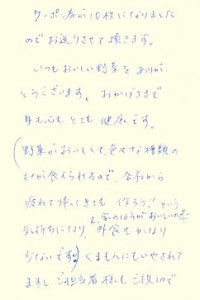 クーポン券が10枚になりました
のでお送りさせて頂きます。
いつもおいしい野菜をありが
とうございます。おかげさまで
身も心もとても健康です。
(野菜がおいしくて、色々な種類の
ものが食べられるので、会社から
疲れて帰ってきても 作ろう、という
又、家のほうがおいしいので
気持ちになり、外食もかなり
少ないです。) くまもんにもいやされて
ますし ご担当者様も